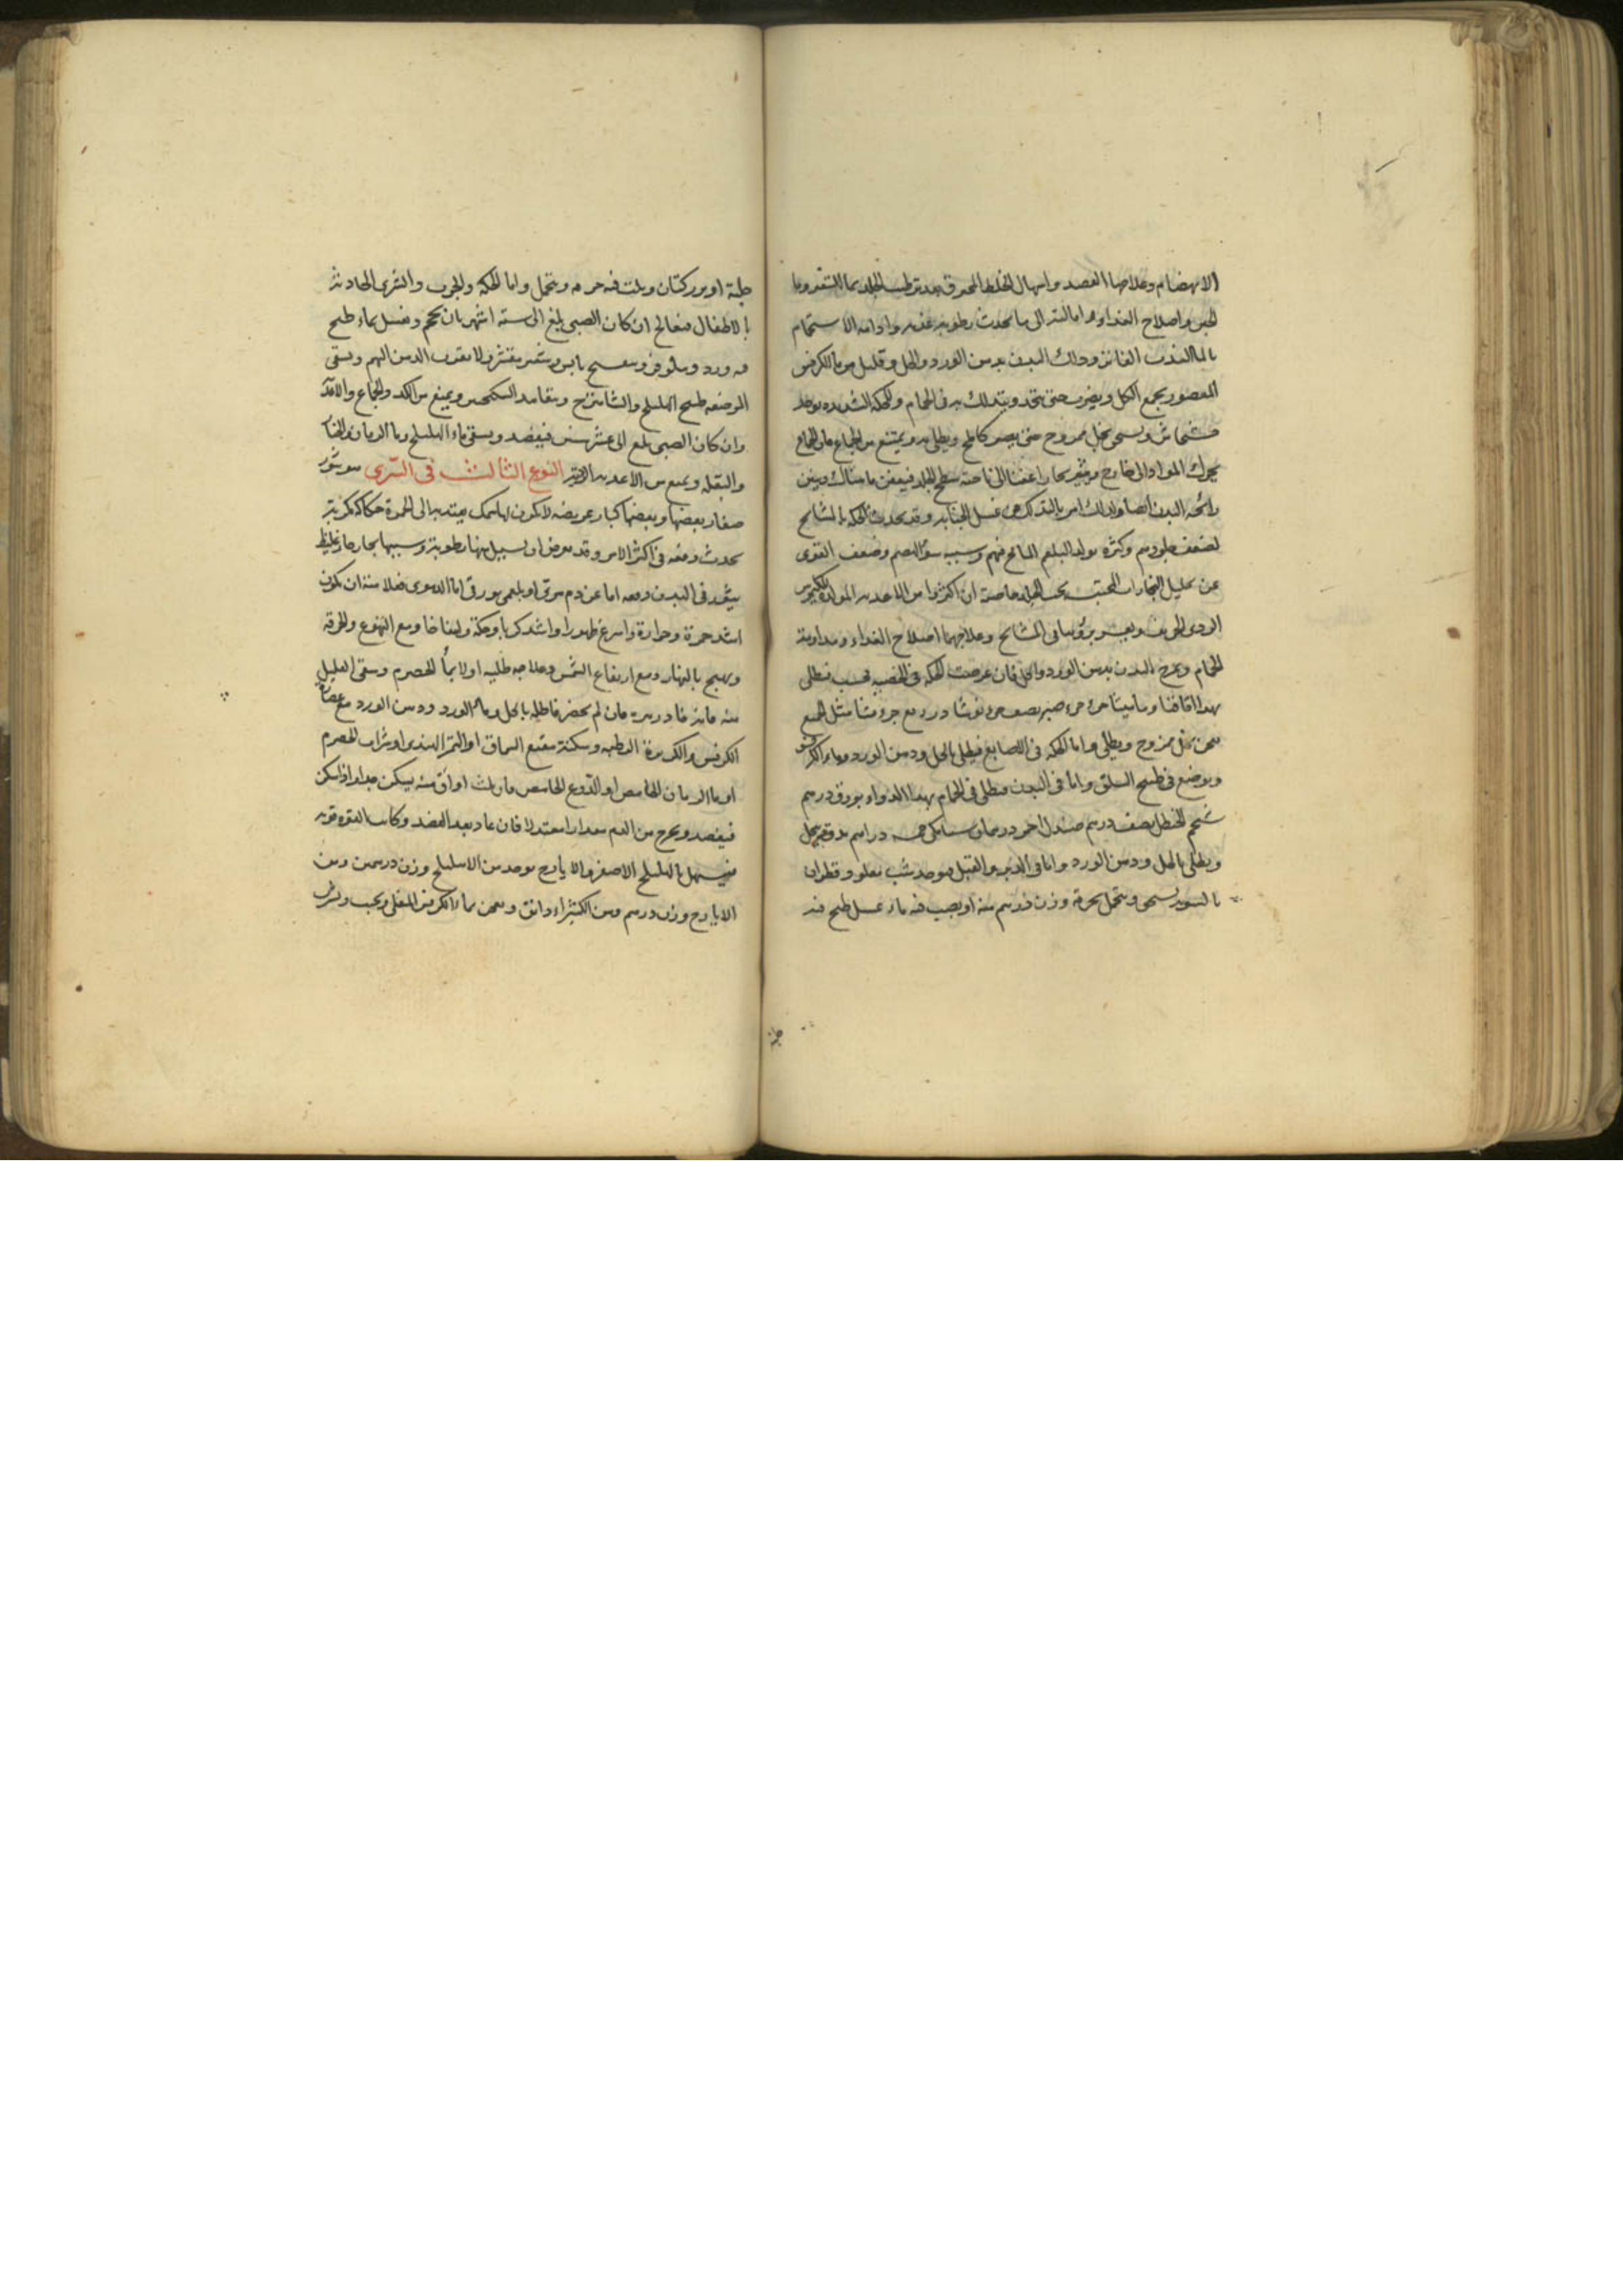 الانهضام وعلاجها الفصد واسهال الخلط المحرق بعد ترطيب الجلد بماء الشعير وماء
الجبن واصلاح الغذاء واما التى الى ما يحدث رطوبة عذبه وادامة الاستحمام
بالماء العذب الفاتر ودلك البدن بدهن الورد والخل وقليل من ماء الكرفس
المعصور يجمع الكل ويضرب حتى يتحد ويتدلك به فى الحمام وللحكة الشديده يوخذ
خشخاش ويسحق بخل ممزوج حتى يصير كالمخ ويطلى به ويمتنع من الجماع فان الجماع
يحرك المواد الى خارج ويثير بخارا عفنا الى ناحية سطح الجلد فيعفن ما هناك وينتن
رائحه البدن ايضا ولذلك امر بالتدلك فى غسل الجنابه وقد يحدث الحكه بالمشايخ
لضعف جلودهم وكثرة تولد البلغم المالح فيهم وسببه سؤ الهضم وضعف القوى
عن تحليل البخارات المحتبسه تحت الجلد خاصة ان اكثروا من الاغذيه المولدة للكيموس
الردى الحريف ويعسر برؤها فى المشايخ وعلاجهما اصلاح الغذاء ومداومة
الحمام ومرخ البدن بدهن الورد والخل فان عرضت الحكه فى الخصيه فحسب فيطلى
بهذا اقاقيا وماميثا جزء جزء صبر نصف جزء نوشادر ربع جزء مثل الجميع
يعجن بخل ممزوج ويطلى واما الحكه فى الاصابع فيطلى بالخل ودهن الورد وماء الكرفس
ويوضع فى طبيخ السلق واما فى البدن فيطلى فى الحمام بهذا الدواء بورق درهم
شحم الحنظل نصف درهم صندل احمر درهمان دراهم يدق بخل
ويطلى بالخل ودهن الورد واما فى الدبر والقبل فيوخذ شب وقطران
بالسويه يسحق ويتحمل بخرقة وزن درهم منه او يصب فيه ماء عسل طبخ فيه
حلبة او بزر كتان ويلت فيه خرقه ويتحمل واما الحكه والجرب والشرى الحادثة
بالاطفال فيعالج ان كان الصبى بلغ الى ستة اشهر بان يحجم ويغسل بماء طبخ
فيه ورد ونيلوفر وبنفسج يابس وشعير مقشر ولا يقرب الدهن اليهم ويسقى
المرضعه طبيخ الهليلج والشاهترج ويمنع من الكد والجماع
وان كان الصبى بلغ الى عشر سنين فيفصد ويسقى ماء الهليلج وماء الرمان
والبقله ويمنع من الاغذيه النوع الثالث فى الشرى هو بثور
صغار بعضها وبعضها كبار عريضه لا يكون لها سمك يميل الى الحمرة حكاكة مكربة
يحدث دفعه فى اكثر الامر وقد يعرض ان يسيل منها رطوبة وسببها بخار حار غليظ
يثور فى البدن دفعه اما عن دم مرى او بلغمى بورقى اما الدموى فعلامته ان يكون
اشد حمرة وحرارة واسرع ظهورا واشد كربا وحكة وانتفاخا ومع التهوع والحرقه
ويهيج بالنهار ومع ارتفاع الشمس وعلاجه طليه اولا بماء الحصرم وسقى العليل
منه فان لم يحضر فاطله بالخل وماء الورد ودهن الورد مع عصارة
الكرفس والكزبرة الرطبه وسكنه بنقيع السماق او التمر الهندى او شراب الحصرم
او ماء الرمان الحامض او الدوغ الحامض فان ثلث اواق منه يسكن جدا واذا سكن
فيفصد ويخرج من الدم مقدارا معتدلا فان عاد بعد الفصد وكانت القوه قويه
فيسهل بالهليلج الاصفر والايارج يوخذ من الاهليلج وزن درهمين ومن
الايارج وزن درهم ومن الكثيراء دانق ويعجن بماء الكرفس المغلى ويحبب ويشرب
حلبة